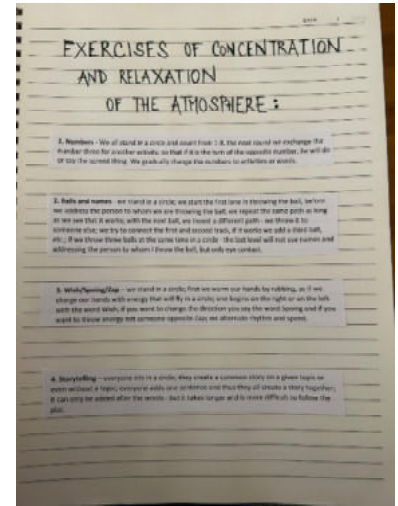 EXERCISES OF CONCENTRATION
AND RELAXATION
OF THE ATMOSPHERE :
1. Numbers - We all stand in a circle and count from 1-8, the next round we exchange the
number three for another activity, so that if it is the turn of the opposite number, he will do
or say the agreed thing. We gradually change the numbers to activities or words.
2. Balls and names - we stand in a circle; we start the first lane in throwing the ball, before
we address the person to whom we are throwing the ball, we repeat the same path as long
as we see that it works; with the next ball, we invent a different path - we throw it to
someone else; we try to connect the first and second track, if it works we add a third ball,
etc.; if we throw three balls at the same time in a circle - the last level will not use names and
addressing the person to whom I throw the ball, but only eye contact.
3. Wish/Spoing/Zap - we stand in a circle, first we warm our hands by rubbing, as if we
charge our hands with energy that will fly in a circle; one begins on the right or on the left
with the word Wish, if you want to change the direction you say the word Spoing and if you
want to throw energy not someone opposite Zap; we alternate rhythm and speed.
4. Storytelling - everyone sits in a circle; they create a common story on a given topic or
even without a topic; everyone adds one sentence and thus they all create a story together;
it can only be added after the words - but it takes longer and is more difficult to follow the
plot.